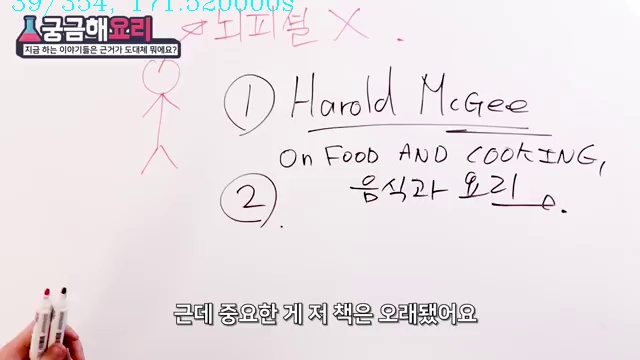 39/354, 171.520000s
궁금해요리
지금 하는 이야기들은 근거가 도대체 뭐에요?
뇌피셜 X .
① Harold McGee
ON FOOD AND COOKING,
음식과 요리.
② .
근데 중요한 게 저 책은 오래됐어요